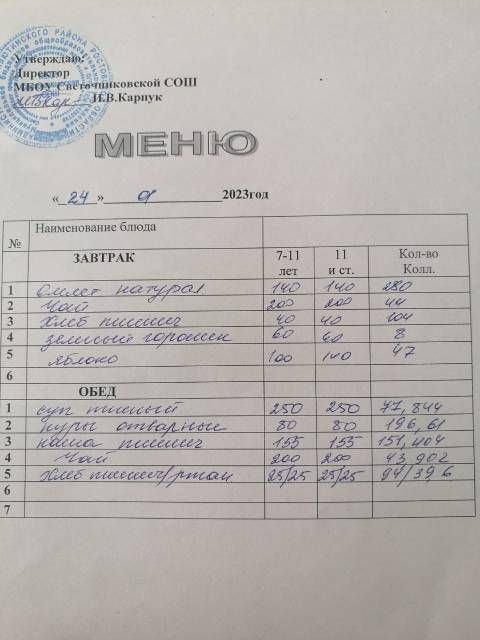 Утверждаю:
Директор
МБОУ Светочниковской СОШ
И.В.Карпук
МЕНЮ
« 24 » 01 2023год
№ Наименование блюда
ЗАВТРАК 7-11 лет 11 и ст. Кол-во Колл.
1 Омлет натурал 140 140 280
2 Чай 200 200 44
3 Хлеб пшенич 40 40 104
4 зеленый горошек 60 60 8
5 яблоко 100 140 47
6
ОБЕД
1 суп пшеный 250 250 77,844
2 куры отварные 80 80 196,61
3 каша пшенич 155 155 151,404
4 Чай 200 200 43,902
5 Хлеб пшенич/ржан 25/25 25/25 94/39,6
6
7